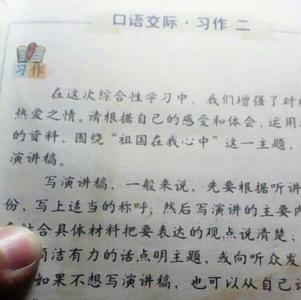 口语交际·习作 二
习作
在这次综合性学习中，我们增强了对
热爱之情。请根据自己的感受和体会，运用
的资料，围绕“祖国在我心中”这一主题，
演讲稿。
写演讲稿，一般来说，先要根据听讲
份，写上适当的称呼；然后写演讲的主要内
结合具体材料把要表达的观点说清楚；
简洁有力的话点明主题，或向听众发
如果不想写演讲稿，也可以从自己